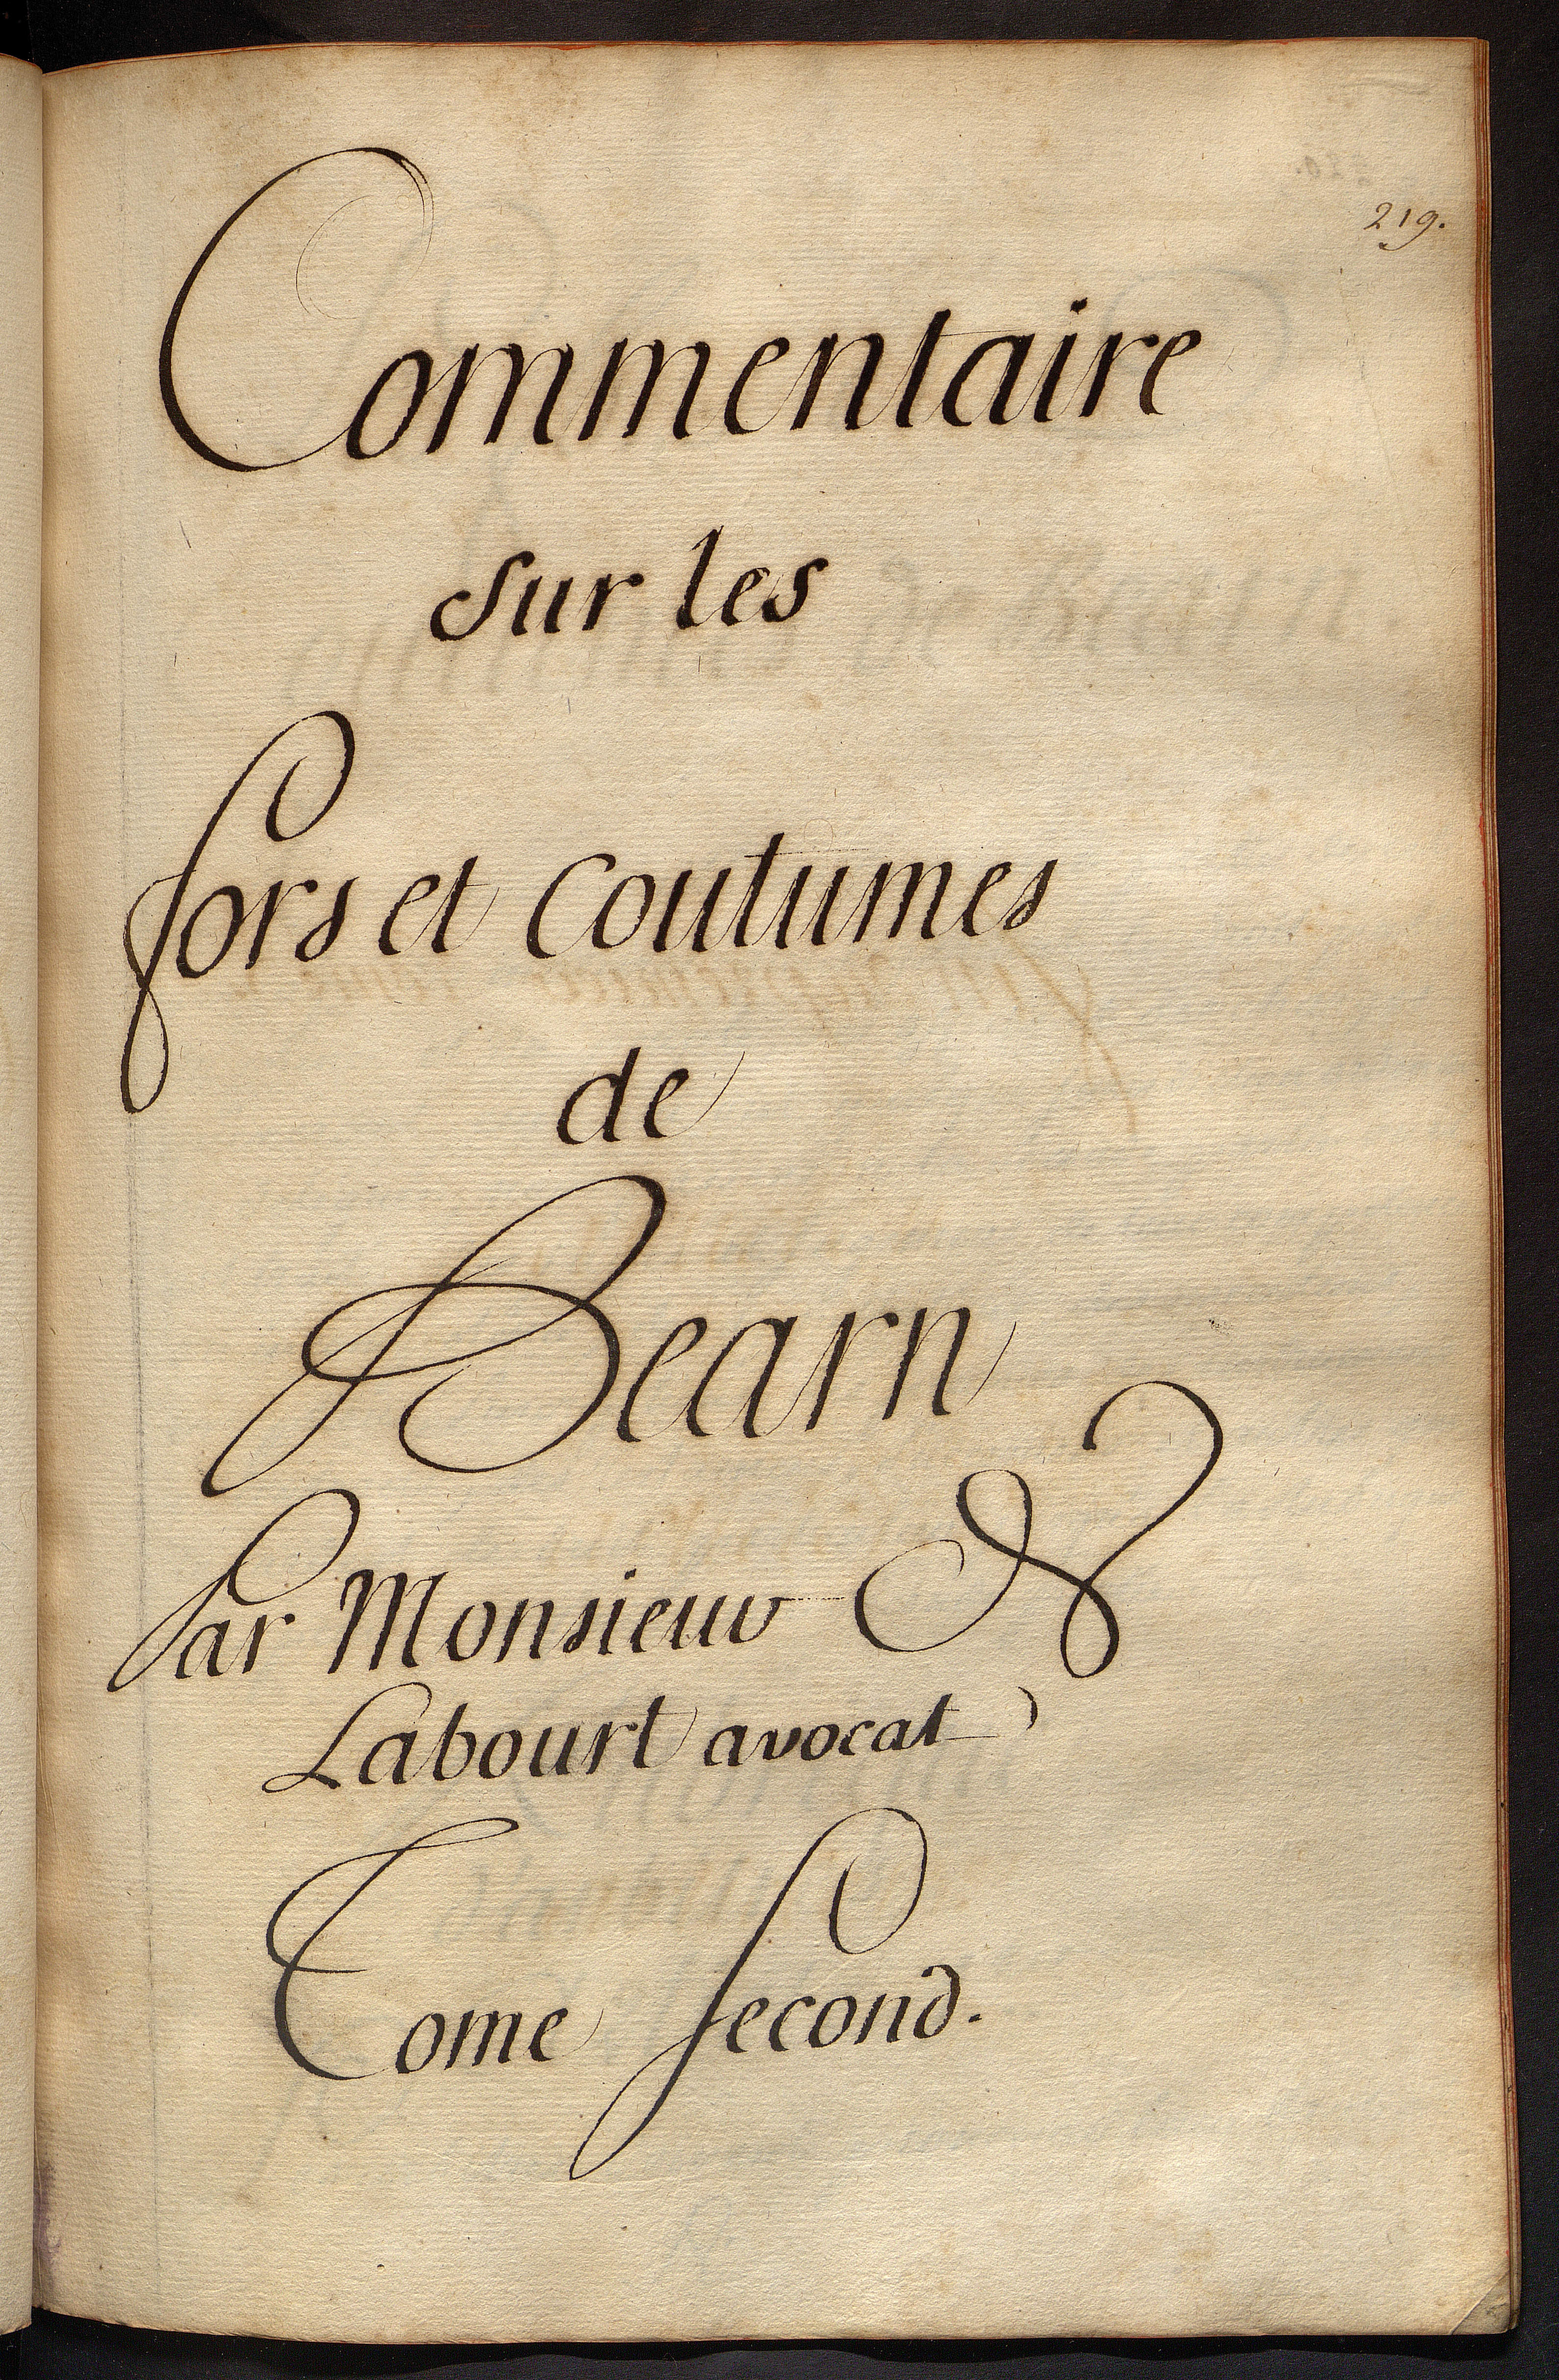 219.
Commentaire
sur les
fors et coutumes
de
Bearn
Par Monsieur De
Labourt avocat
Tome second.